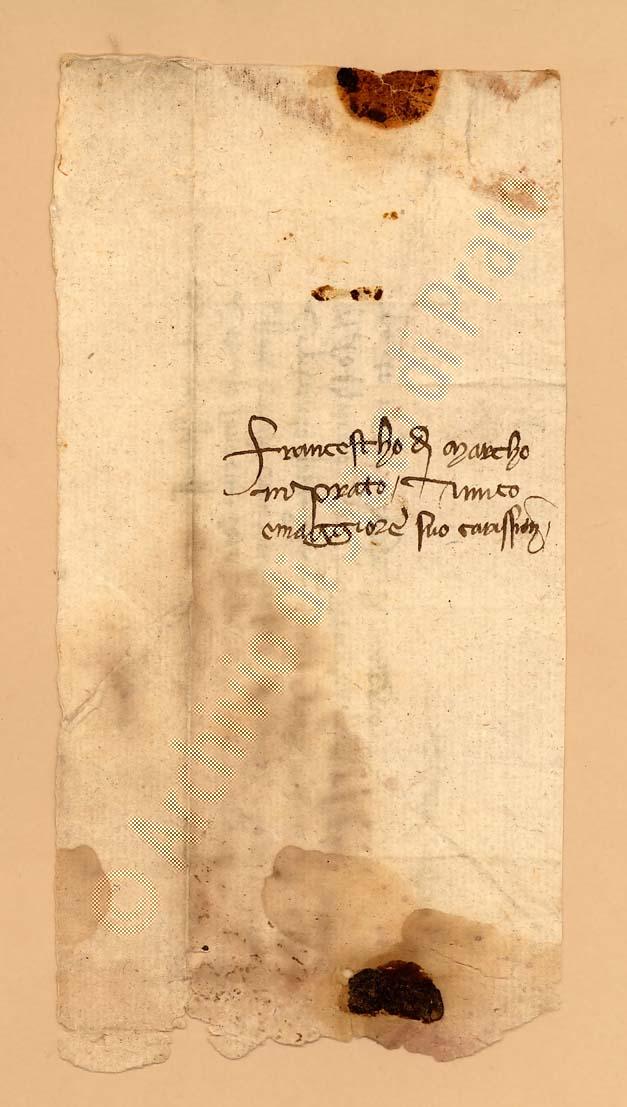 Francescho di Marcho
in Prato, Amico
e maggiore suo carissim
© Archivio di Stato di Prato